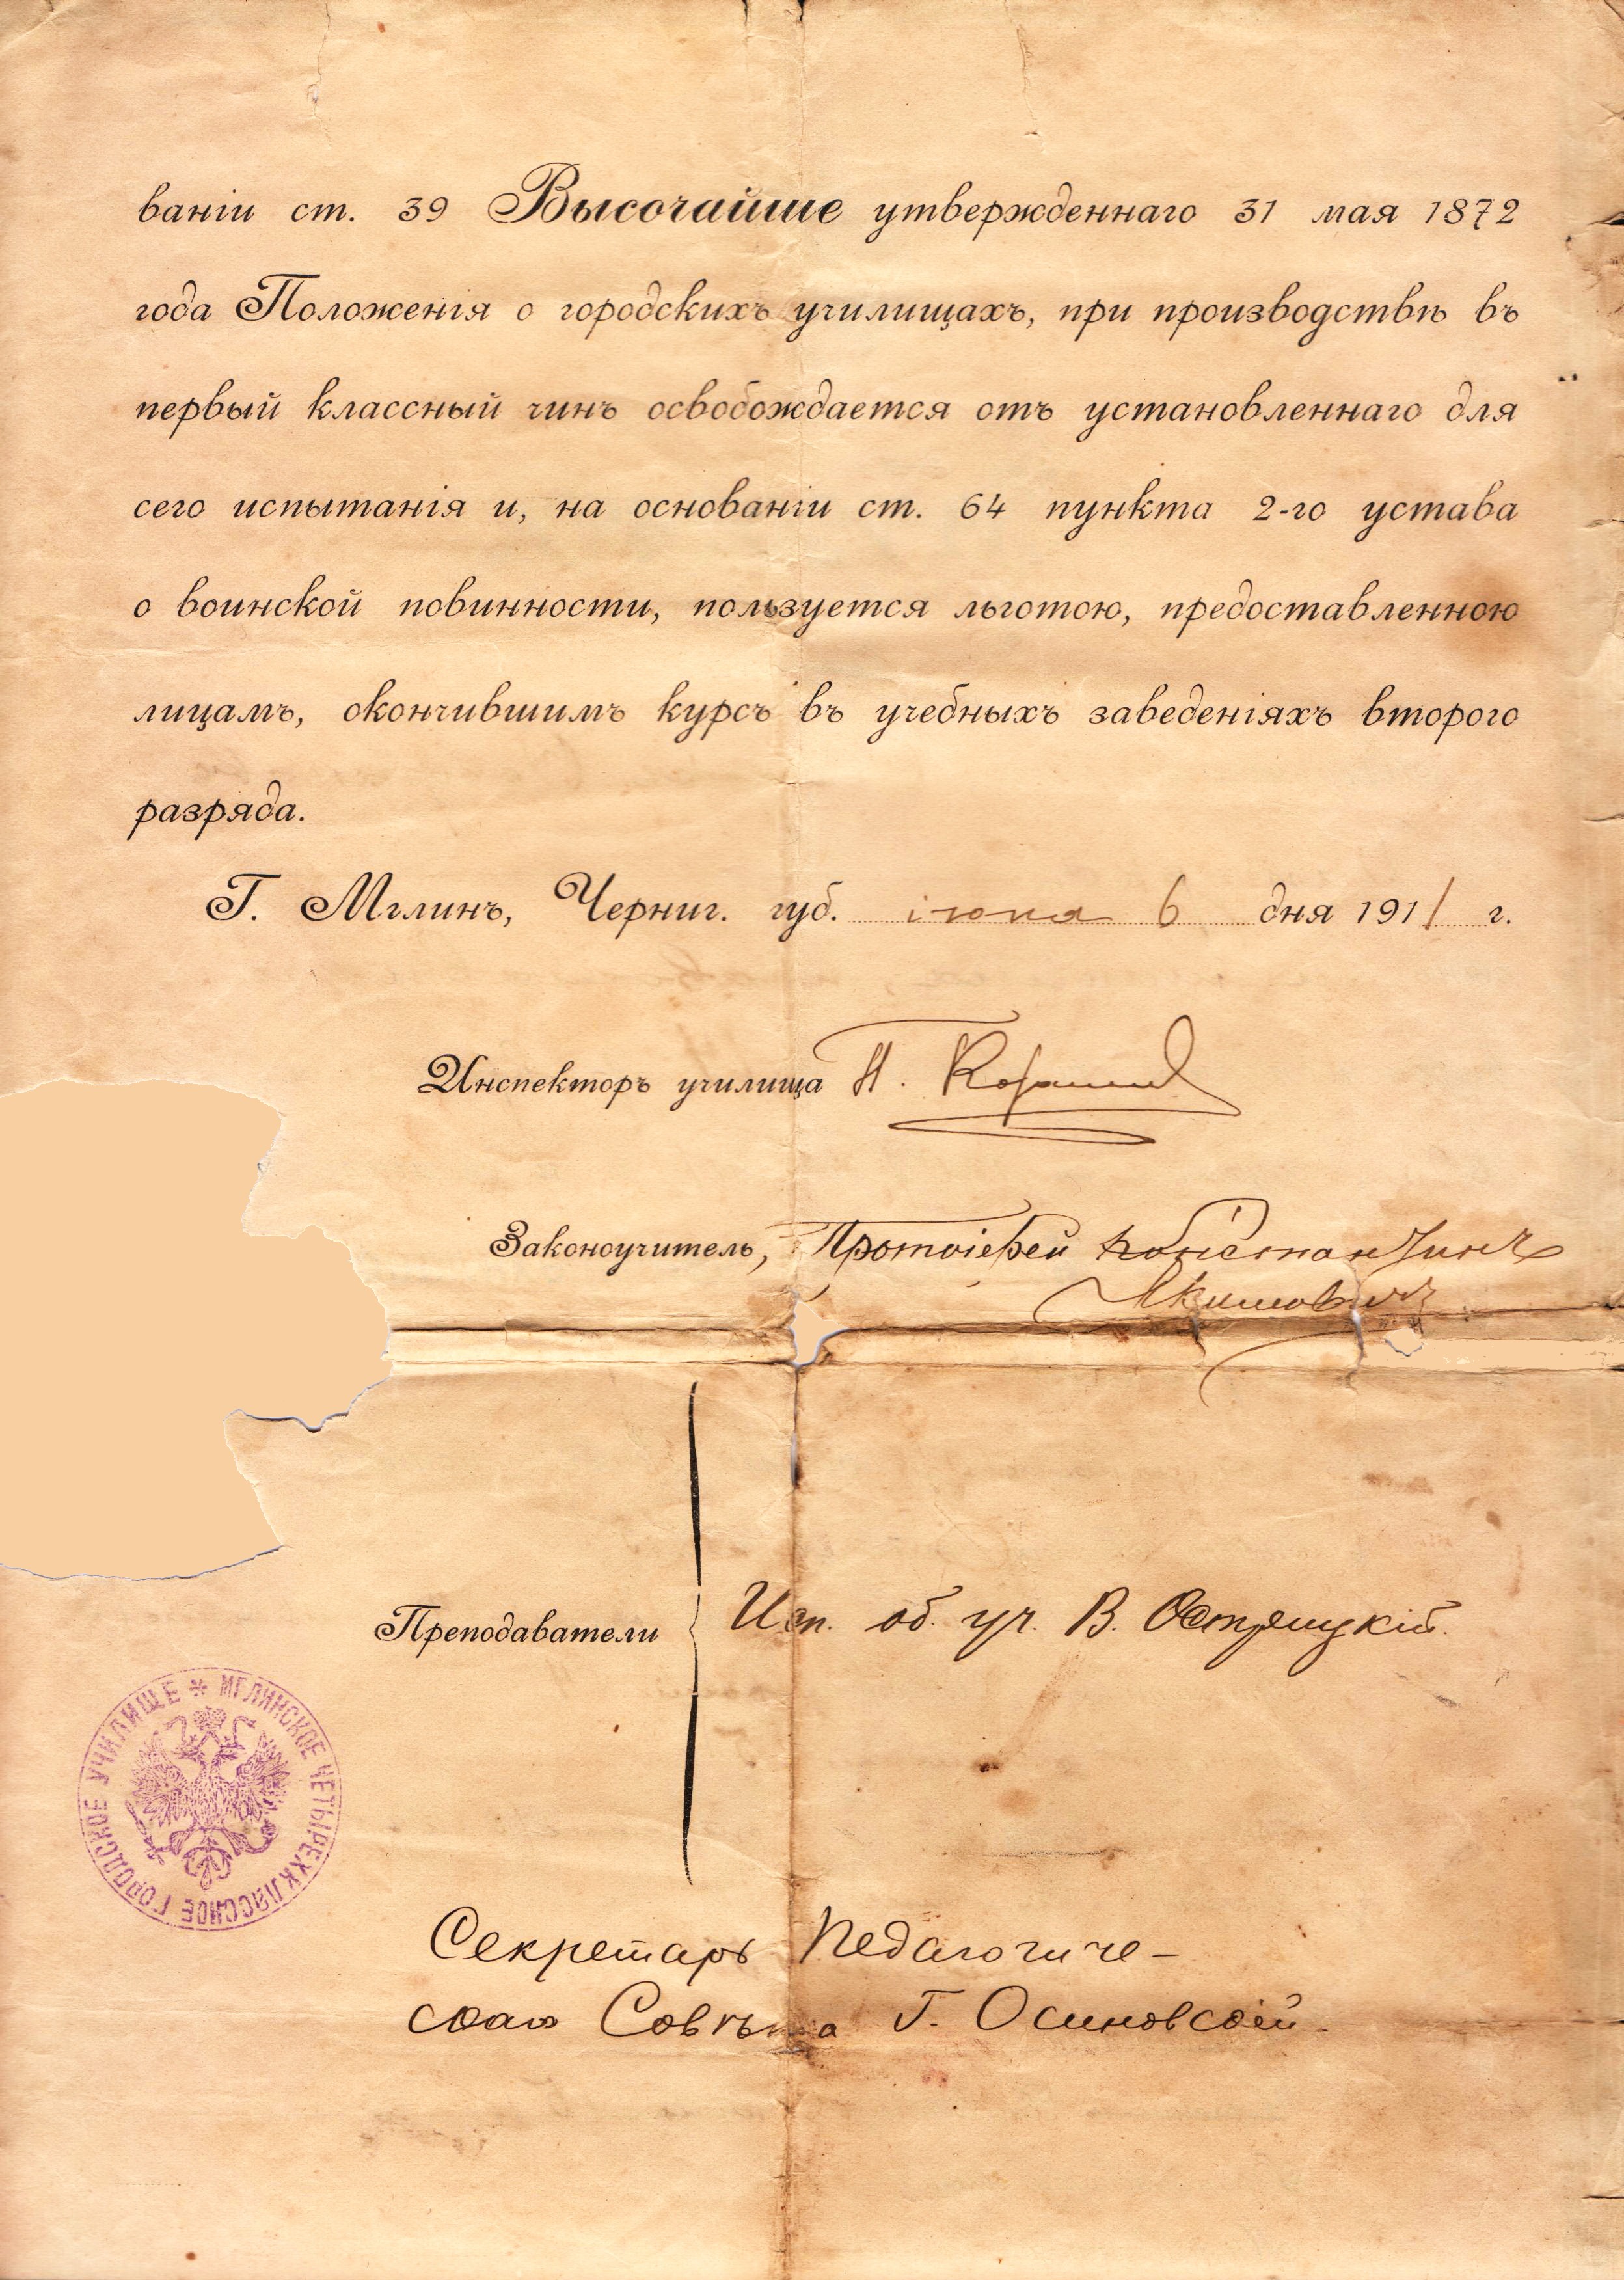 ваніи ст. 39 Высочайше утвержденнаго 31 мая 1872
года Положенія о городскихъ училищахъ, при производствѣ въ
первый классный чинъ освобождается отъ установленнаго для
сего испытанія и, на основаніи ст. 64 пункта 2-го устава
о воинской повинности, пользуется льготою, предоставленною
лицамъ, окончившимъ курсъ въ учебныхъ заведеніяхъ второго
разряда.
Г. Мглинъ, Черниг. губ. іюня 6 дня 1911 г.
Инспекторъ училища
Законоучитель, Протоіерей Константинъ
Якимовичъ
Преподаватели Исп. об. уч. В.
МГЛИНСКОЕ ЧЕТЫРЕХКЛАССНОЕ ГОРОДСКОЕ УЧИЛИЩЕ *
Секретарь Педагогиче-
скаго Совѣта Г. Осиновскій